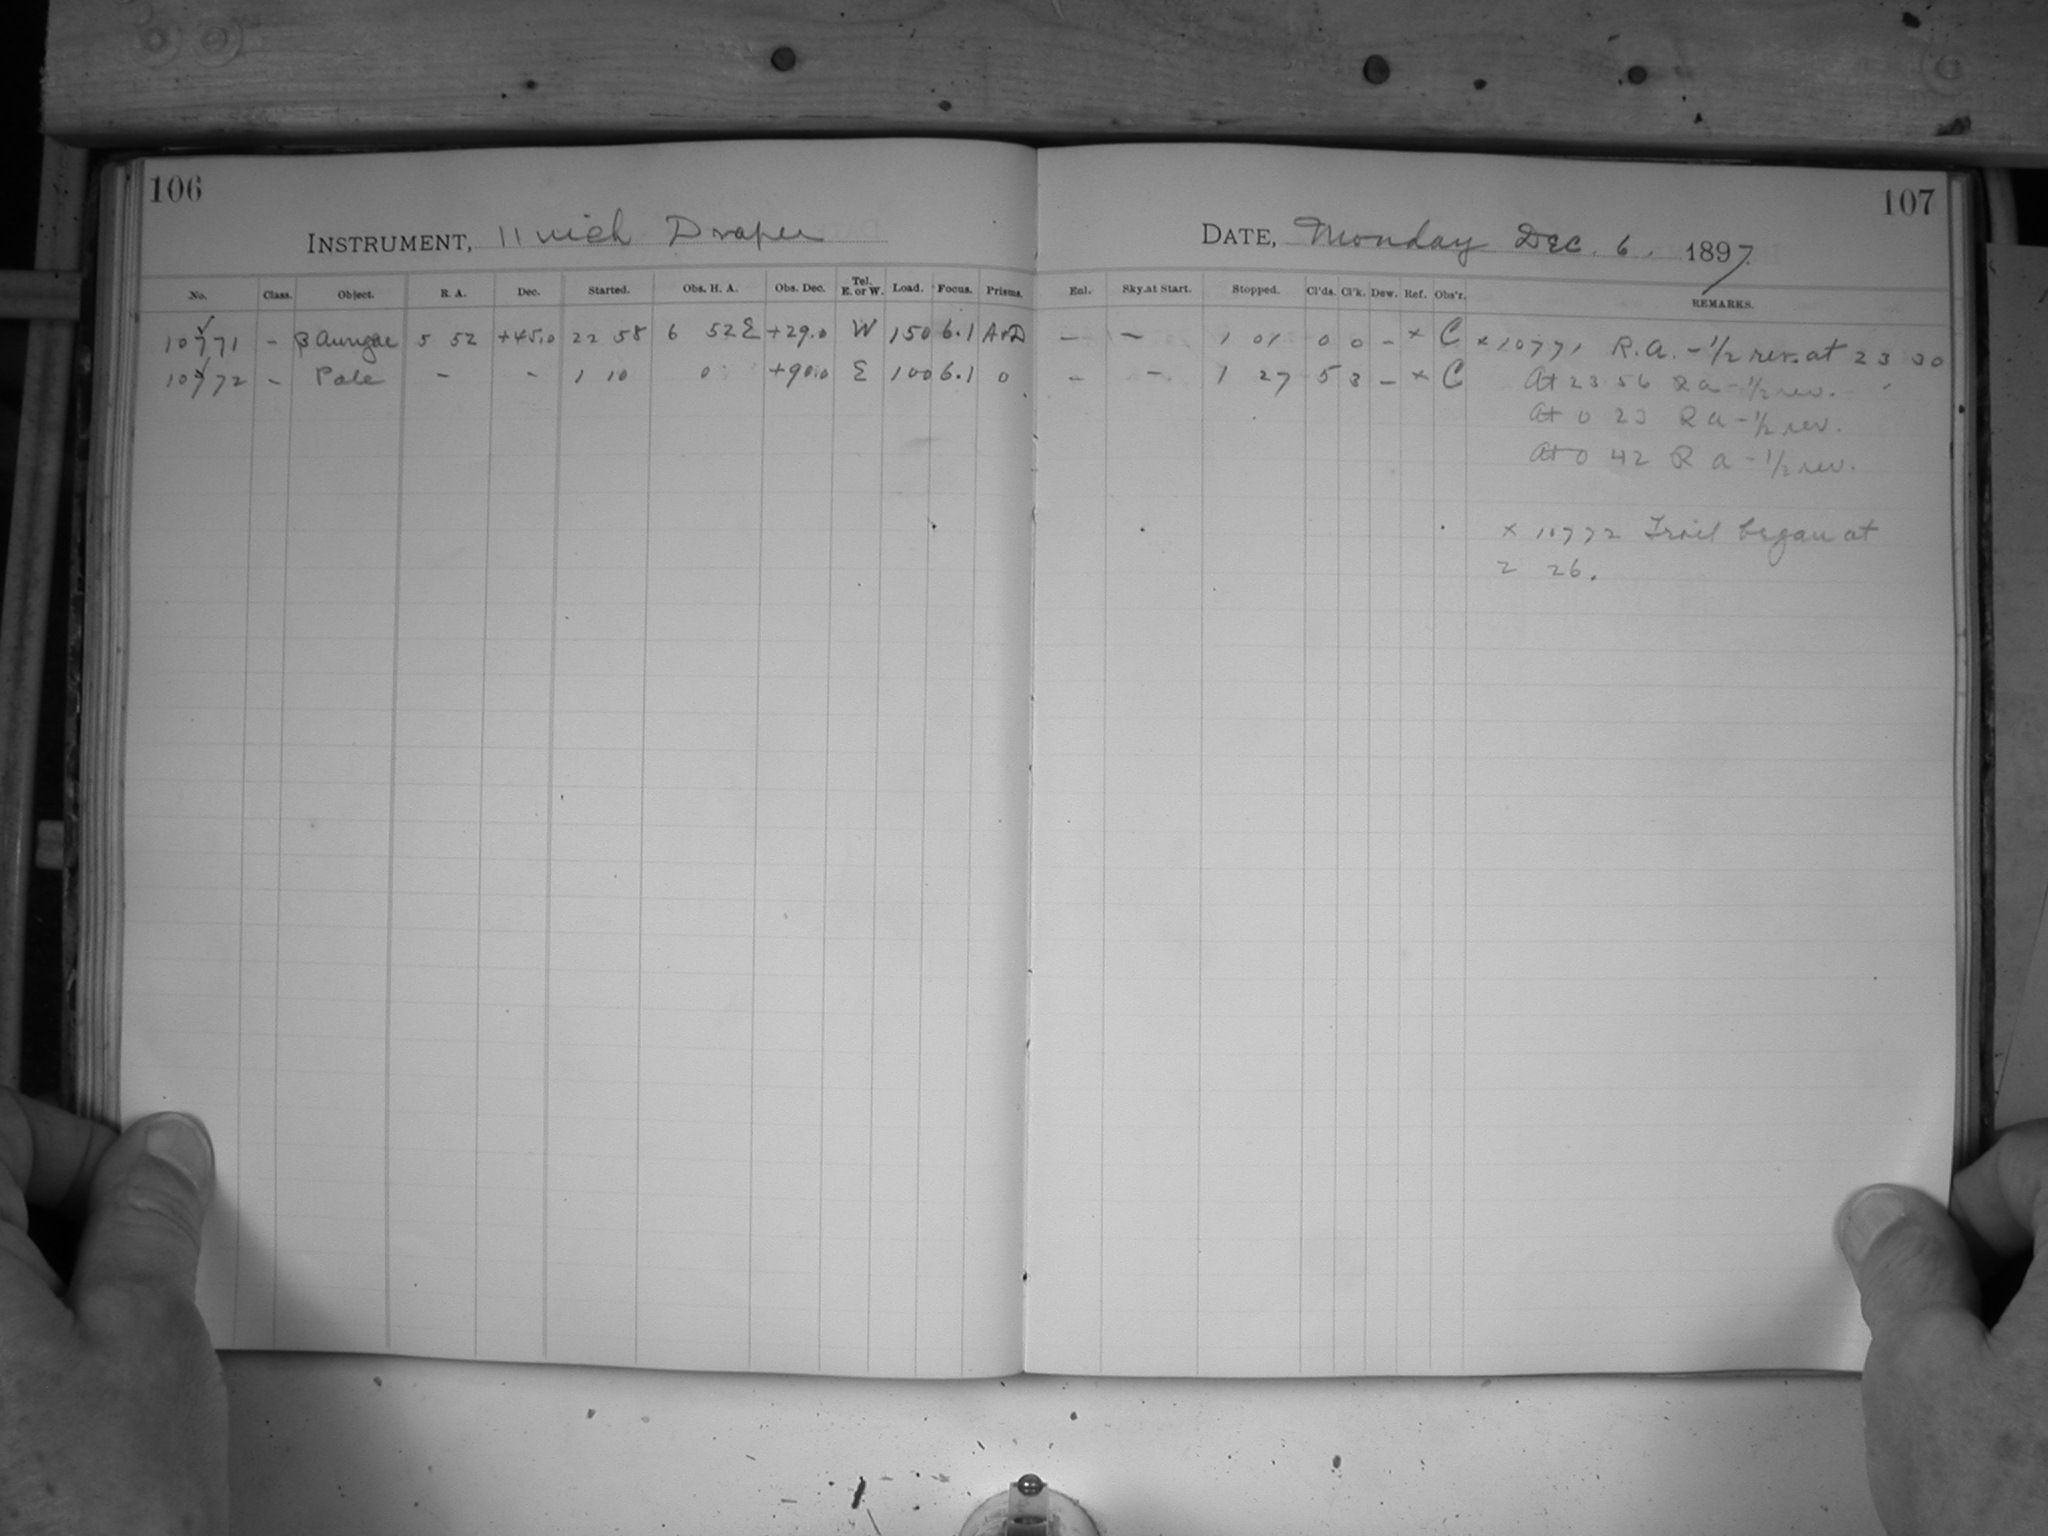 106
107
INSTRUMENT, 11 inch Draper
DATE, Monday Dec. 6. 1897
No. Class. Object. R. A. Dec. Started. Obs. H. A. Obs. Dec. Tel. E. or W. Load. Focus. Prisms. Enl. Sky at Start. Stopped. Cl'ds. Cl'k. Dew. Ref. Obs'r. REMARKS.
10771 - β Aurigae 5 52 +45.0 22 58 6 52 E +29.0 W 150 6.1 A+D - - 1 01 0 0 - × C × 10771 R.A. - 1/2 rev. at 23 30
10772 - Pole - - 1 10 0 +90.0 E 100 6.1 0 - - 1 27 5 3 - × C At 23 56 R a - 1/2 rev.
At 0 23 R a - 1/2 rev.
At 0 42 R a - 1/2 rev.
× 10772 Trail began at
2 26.